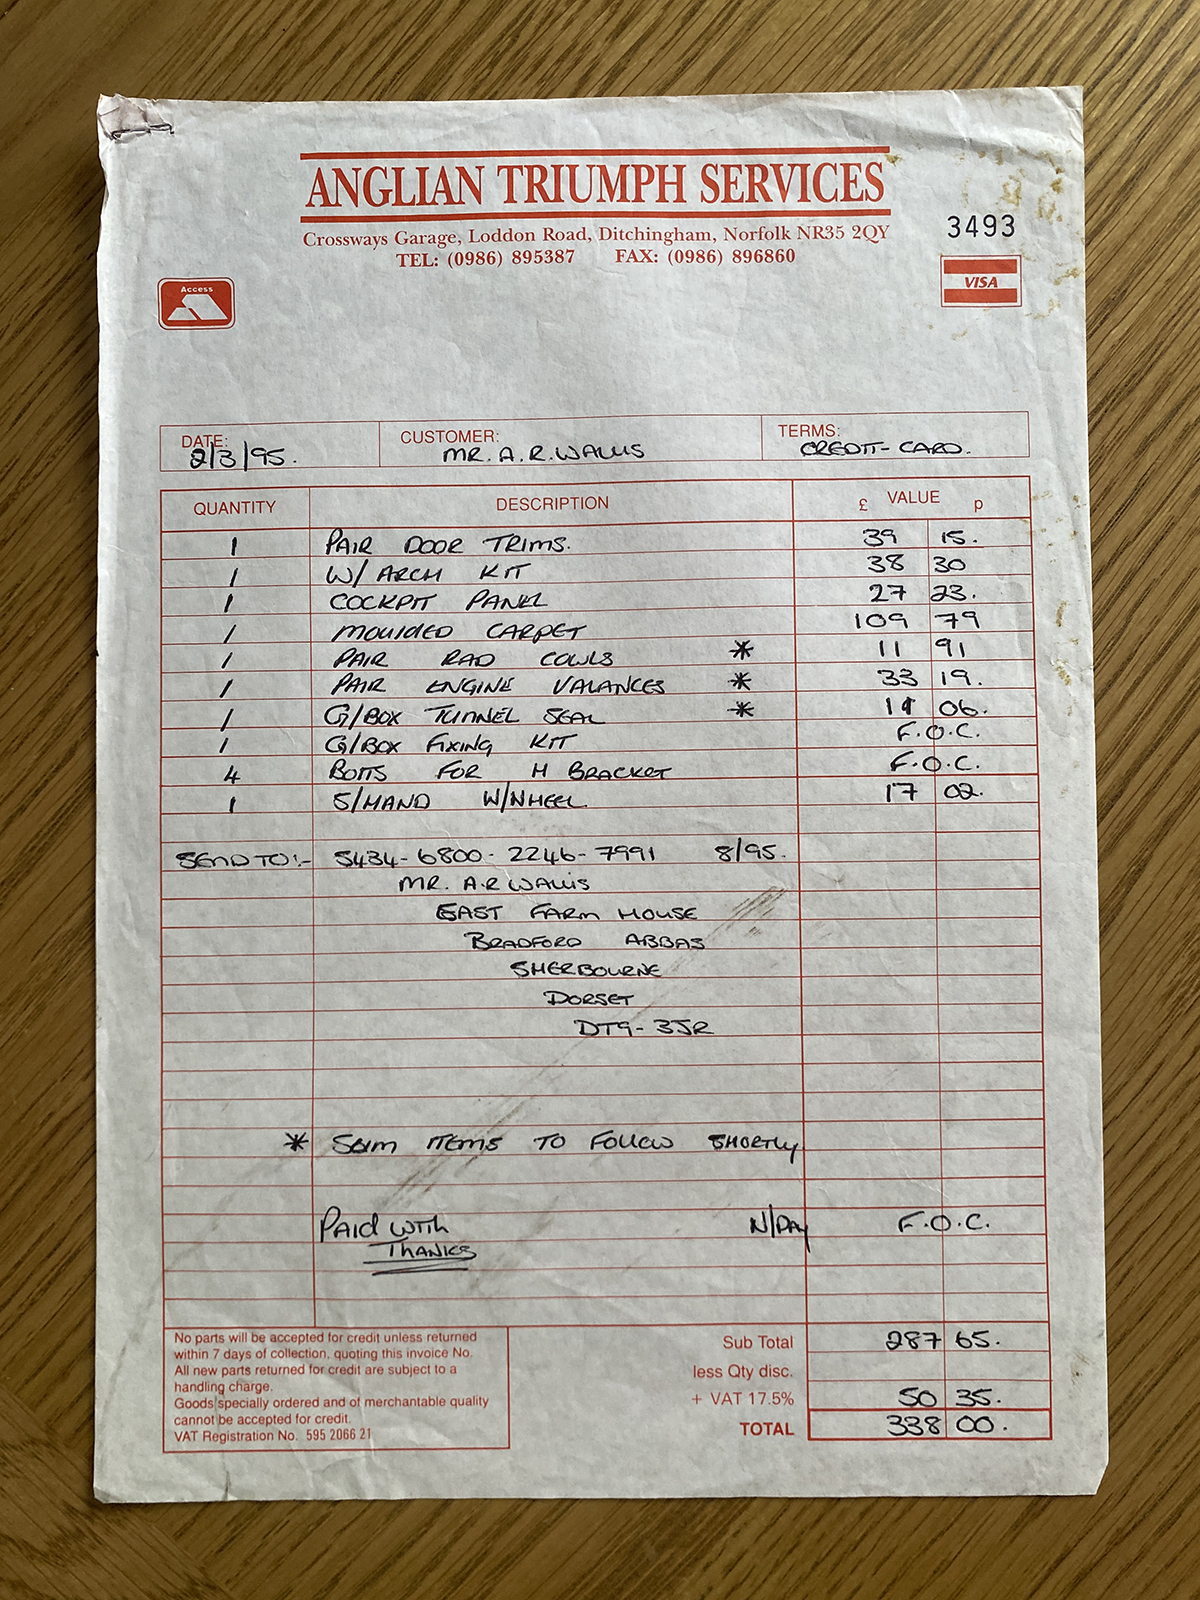 ANGLIAN TRIUMPH SERVICES
Crossways Garage, Loddon Road, Ditchingham, Norfolk NR35 2QY
TEL: (0986) 895387 FAX: (0986) 896860
3493
Access
VISA
DATE: 2/3/95. CUSTOMER: MR. A.R. WALLIS TERMS: CREDIT-CARD.
QUANTITY DESCRIPTION £ VALUE p
1 PAIR DOOR TRIMS. 39 15.
1 W/ARCH KIT 38 30
1 COCKPIT PANEL 27 23.
1 MOULDED CARPET 109 79
1 PAIR RAD COWLS * 11 91
1 PAIR ENGINE VALANCES * 33 19.
1 G/BOX TUNNEL SEAL * 11 06.
1 G/BOX FIXING KIT F.O.C.
4 BOLTS FOR H BRACKET F.O.C.
1 S/HAND W/WHEEL 17 02.
SEND TO:- 5434-6800-2246-7991 8/95.
MR. A.R WALLIS
EAST FARM HOUSE
BRADFORD ABBAS
SHERBOURNE
DORSET
DT9-3JR
* ITEMS TO FOLLOW SHORTLY
PAID WITH N/DAY F.O.C.
THANKS
No parts will be accepted for credit unless returned
within 7 days of collection, quoting this invoice No.
All new parts returned for credit are subject to a
handling charge.
Goods specially ordered and of merchantable quality
cannot be accepted for credit.
VAT Registration No. 595 2066 21
Sub Total 287 65.
less Qty disc.
+ VAT 17.5% 50 35.
TOTAL 338 00.